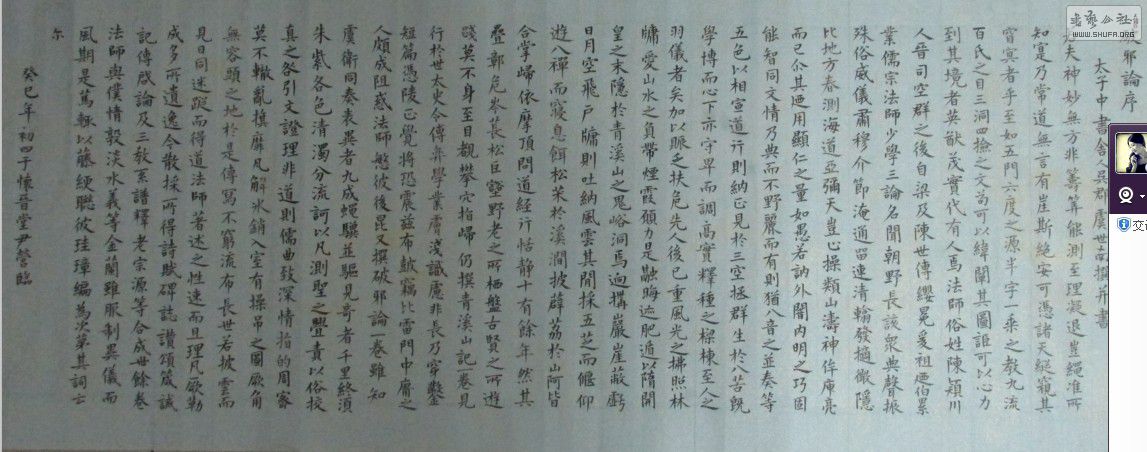 邪論序
太子中書舍人吳郡虞世南撰并書
夫神妙無方非籌算能測至理凝邈豈繩准所
知寔乃常道無言有崖斯絕安可憑諸天縱窺其
窅冥者乎至如五門六度之源半字一乘之教九流
百氏之目三洞四撿之文高可以緯闡其圖詎可以心力
到其境者英猷茂實代有人焉法師俗姓陳潁川
人晉司空群之後自梁及陳世傳纓冕爰祖迺伯累
業儒宗法師少學三論名聞朝野長該眾典聲振
殊俗威儀肅穆介節淹通留連清翰發擿微隱
比地方春測海道亞彌天豈止操類山濤神侔庾亮
而已公其迺用顯仁之量如愚若訥外闇內明之巧固
能智同文情乃典而不野麗而有則猶八音之並奏等
五色以相宣道行則納正見於三空拯群生於八苦既
學博而心下亦守卑而調高實釋種之樑棟至人之
羽儀者矣加以賑乏扶危先人後已重風光之拂照林
牖愛山水之負帶煙霞願力是融晦迹肥遁以隋開
皇之末隱於青溪山之鬼峪洞焉迥搆巖崖蔽虧
日月空飛戶牖則吐納風雲其間採五芝而偃仰
遊八禪而寢息餌松茱於溪澗披薜荔於山阿皆
合掌歸依摩頂問道經行恬靜十有餘年然其
疊鄣危岑長松巨壑野老之所栖盤古賢之所遊
踐莫不身至目覩攀穴指歸仍撰青溪山記一卷見
行於世太史令傅弈學業庸淺識慮非長乃穿鑿
短篇憑陵正覺將恐震茲布皷竊比雷門中庸之
人頗成阻惑法師愍彼後昆又撰破邪論一卷雖知
虞衛同奏表異者九成蠅驥並驅見奇者千里終須
朱紫各色清濁分流訶以凡測聖之舋責以俗挍
真之咎引文證理非道則儒曲致深情指的周密
莫不轍亂旗靡瓦解冰銷入室有操吊之圖厥角
無容頤之地於是傳寫不窮流布長世若披雲而
見日同迷蹤而得道法師著述之性速而且理凡厥勒
成多所遺逸今散採所得詩賦碑誌讚頌箴誡
記傳啟論及三教系譜釋老宗源等合成卅餘卷
法師與僕情敦淡水義等金蘭雖服制異儀而
風期是篤輒以藤綆聯彼珪璋編為次第其詞云
尔
癸巳年初四于懷晉堂尹營臨
書法公社
WWW.SHUFA.ORG
交